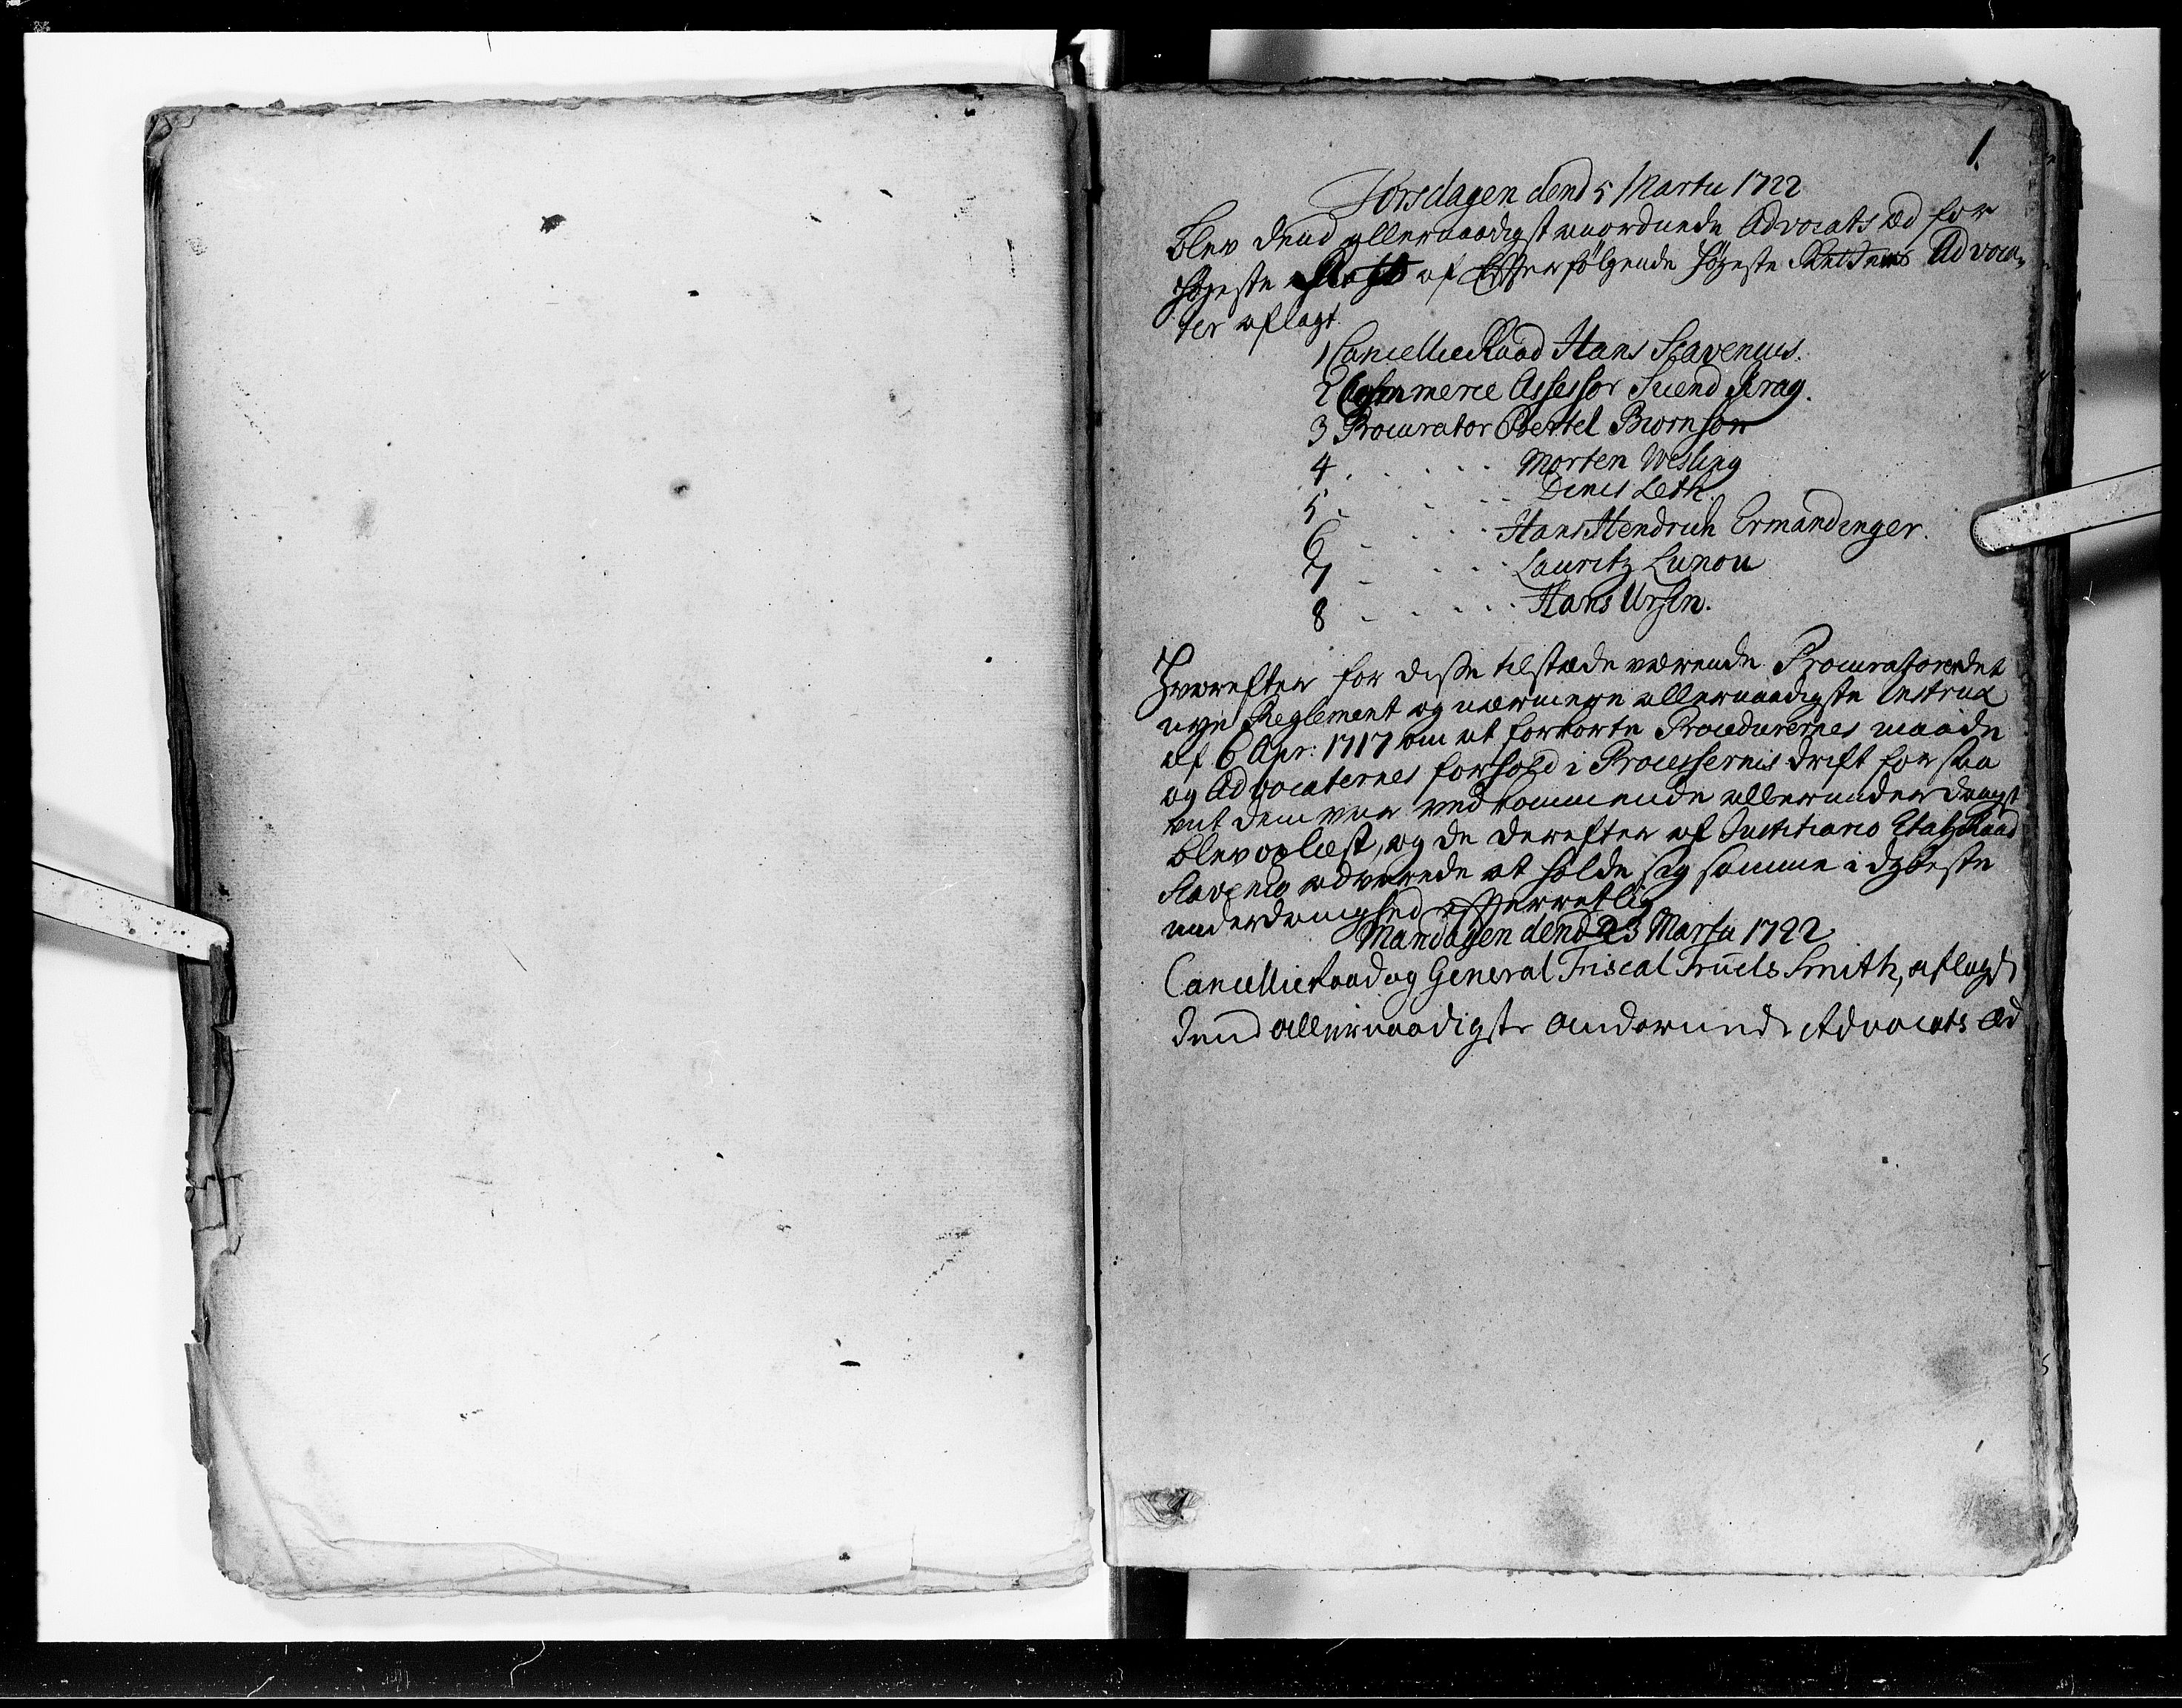 1.
Torsdagen dend 5 Martii 1722
blev dend allernaadigst anordnede Advocats Æd for
Høyeste Rætt af Efterfølgende Høyeste Rettens Advoca-
ter aflagt.
1 Cancellie Raad Hans Scavenius.
2 Commerce Assessor Suend Krag.
3 Procurator Bertel Biornson
4 . . . . Morten Wesling
5 . . . . Dines Leth.
6 . . . . Hans Hendrich Ermandinger.
7 . . . . Lauritz Lunou
8 . . . . Hans Ursin.
Hvorefter for disse tilstæde værende Procuratorer det
nye Reglement og nærmere allernaadigste Instrux
af 6 Apr: 1717 om at forkorte Procedurernes maade
og Advocaternes forhold i Processernis drift for saa
vit dem var vedkommende allerunderdanigst
blev oplæst, og de derefter af Justitiario Etatz Raad
Scavenio advarede at holde sig samme i dybeste
underdanighed efterretlig
Mandagen dend 23 Martii 1722
Cancellie Raad og General Friscal Truels Smith, aflagde
dend allernaadigste Andornede Advocats Æd